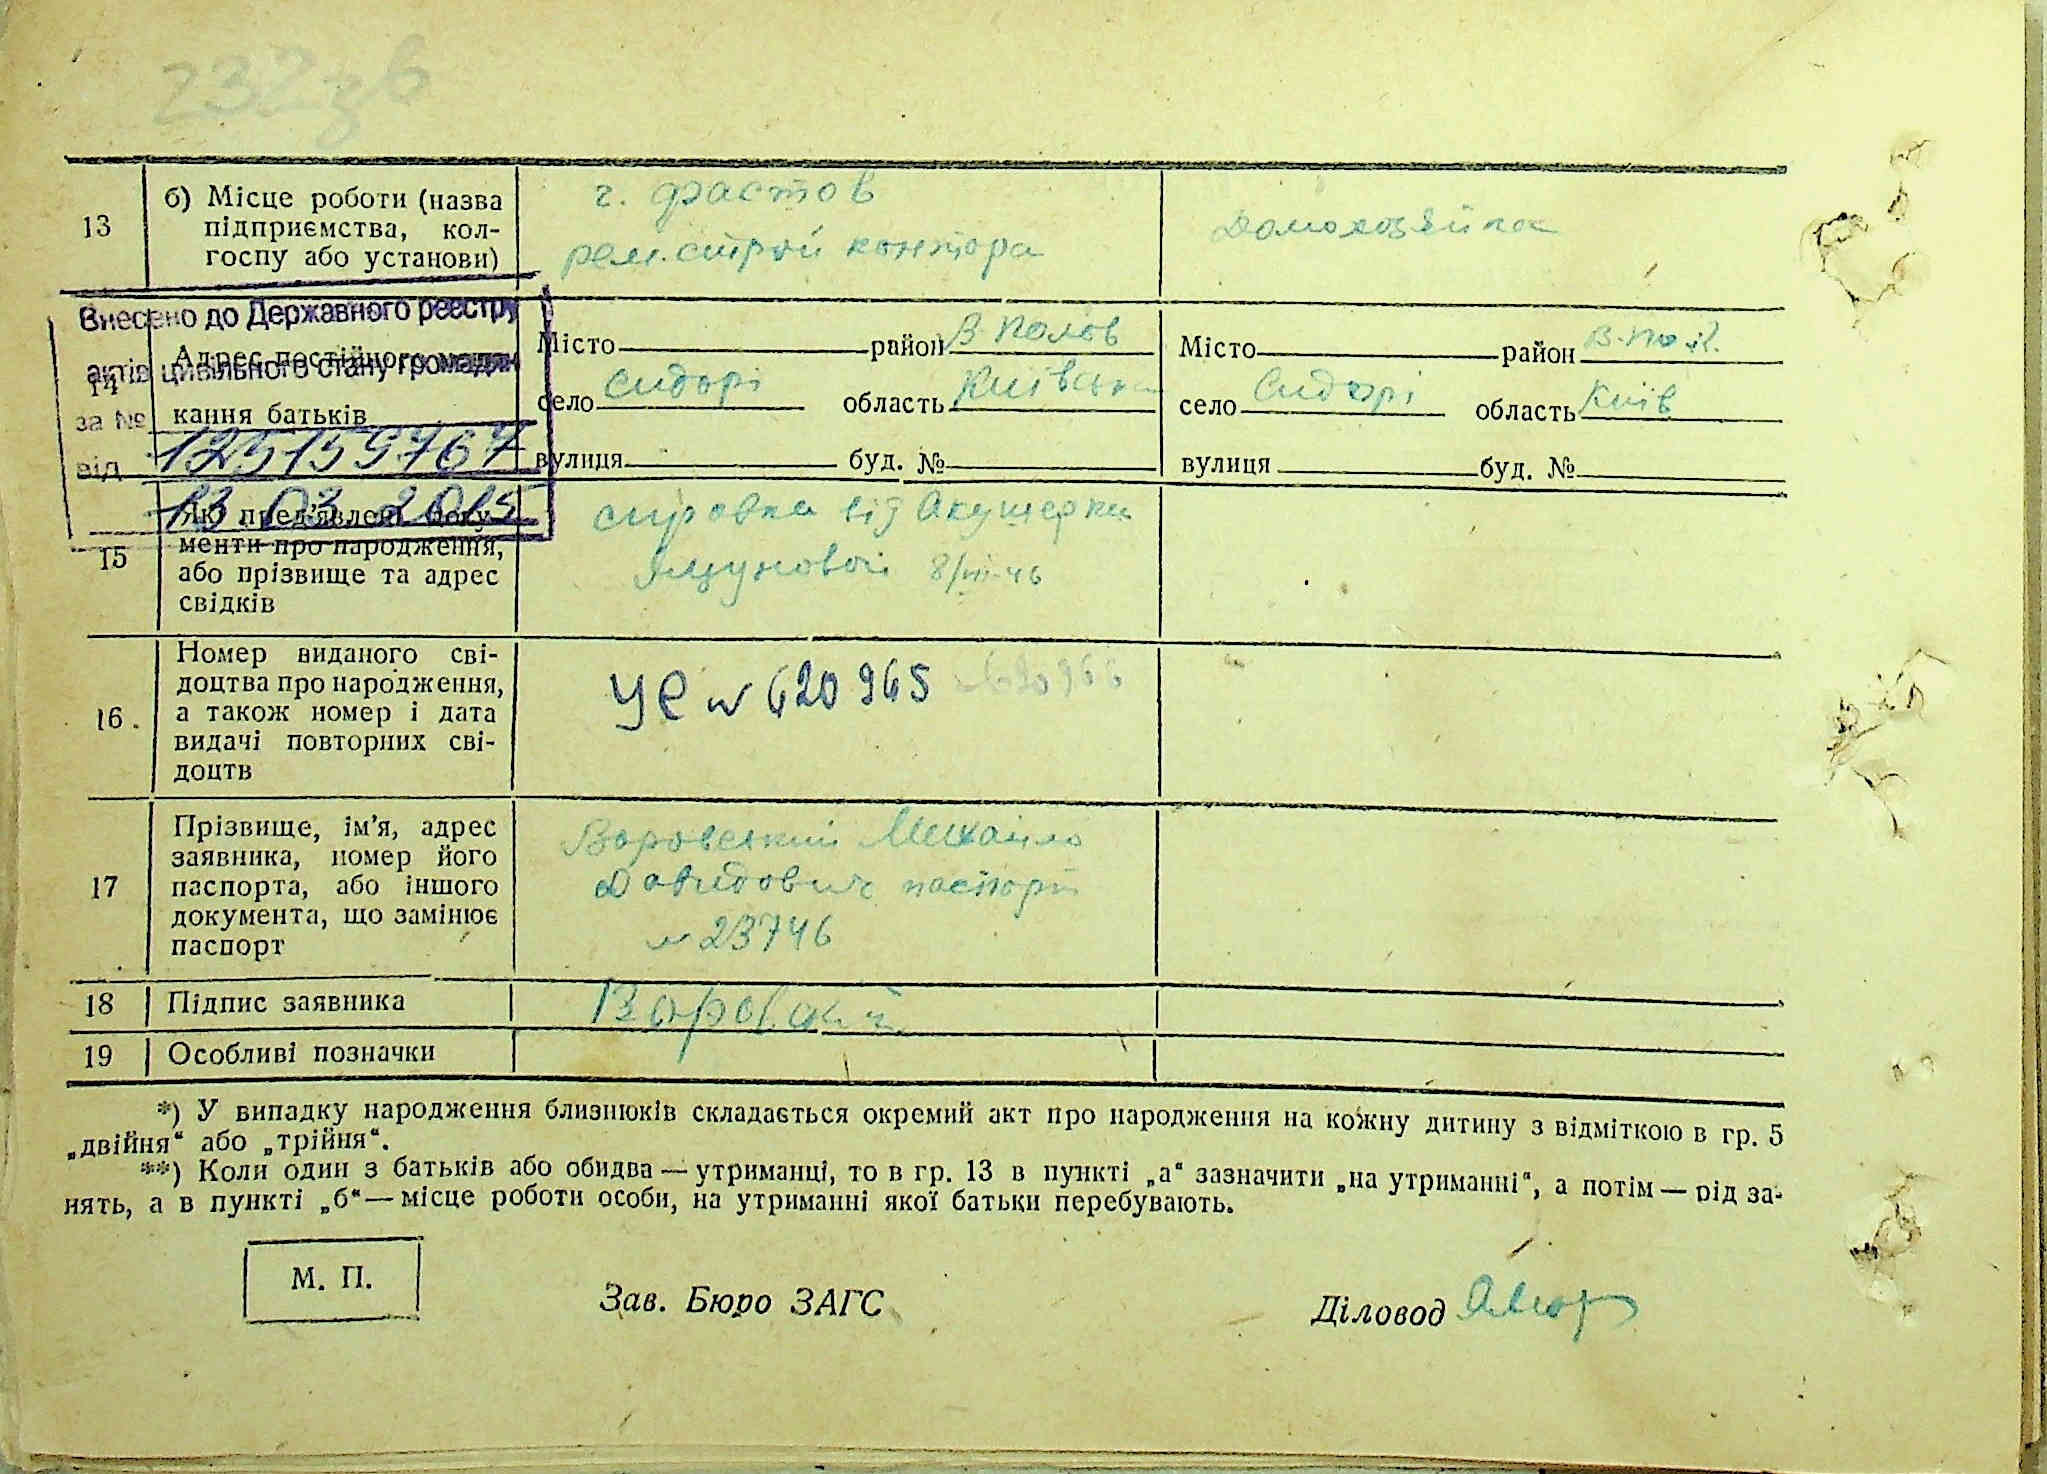 232зв
13
б) Місце роботи (назва
підприємства, кол-
госпу або установи)
г. Фастов
рем. строй контора
Домохозяйка
Внесено до Державного реєстру
актів цивільного стану громадян
за №
125159767
від
13 03 2015
14
Адрес постійного меш-
кання батьків
Місто район В Полов
село Сидорі область Київська
вулиця буд. №
Місто район В-Пол.
село Сидорі область Київ
вулиця буд. №
15
Які пред'явлені доку-
менти про народження,
або прізвище та адрес
свідків
справка від Акушерки
Яцуновой 8/VII-46
16.
Номер виданого сві-
доцтва про народження,
а також номер і дата
видачі повторних сві-
доцтв
УС № 620965 620966
17
Прізвище, ім'я, адрес
заявника, номер його
паспорта, або іншого
документа, що замінює
паспорт
Воровський Михайло
Давидович паспорт
№ 23746
18
Підпис заявника
19
Особливі позначки
*) У випадку народження близнюків складається окремий акт про народження на кожну дитину з відміткою в гр. 5
„двійня“ або „трійня“.
**) Коли один з батьків або обидва — утриманці, то в гр. 13 в пункті „а“ зазначити „на утриманні“, а потім — рід за-
нять, а в пункті „б“ — місце роботи особи, на утриманні якої батьки перебувають.
М. П.
Зав. Бюро ЗАГС
Діловод